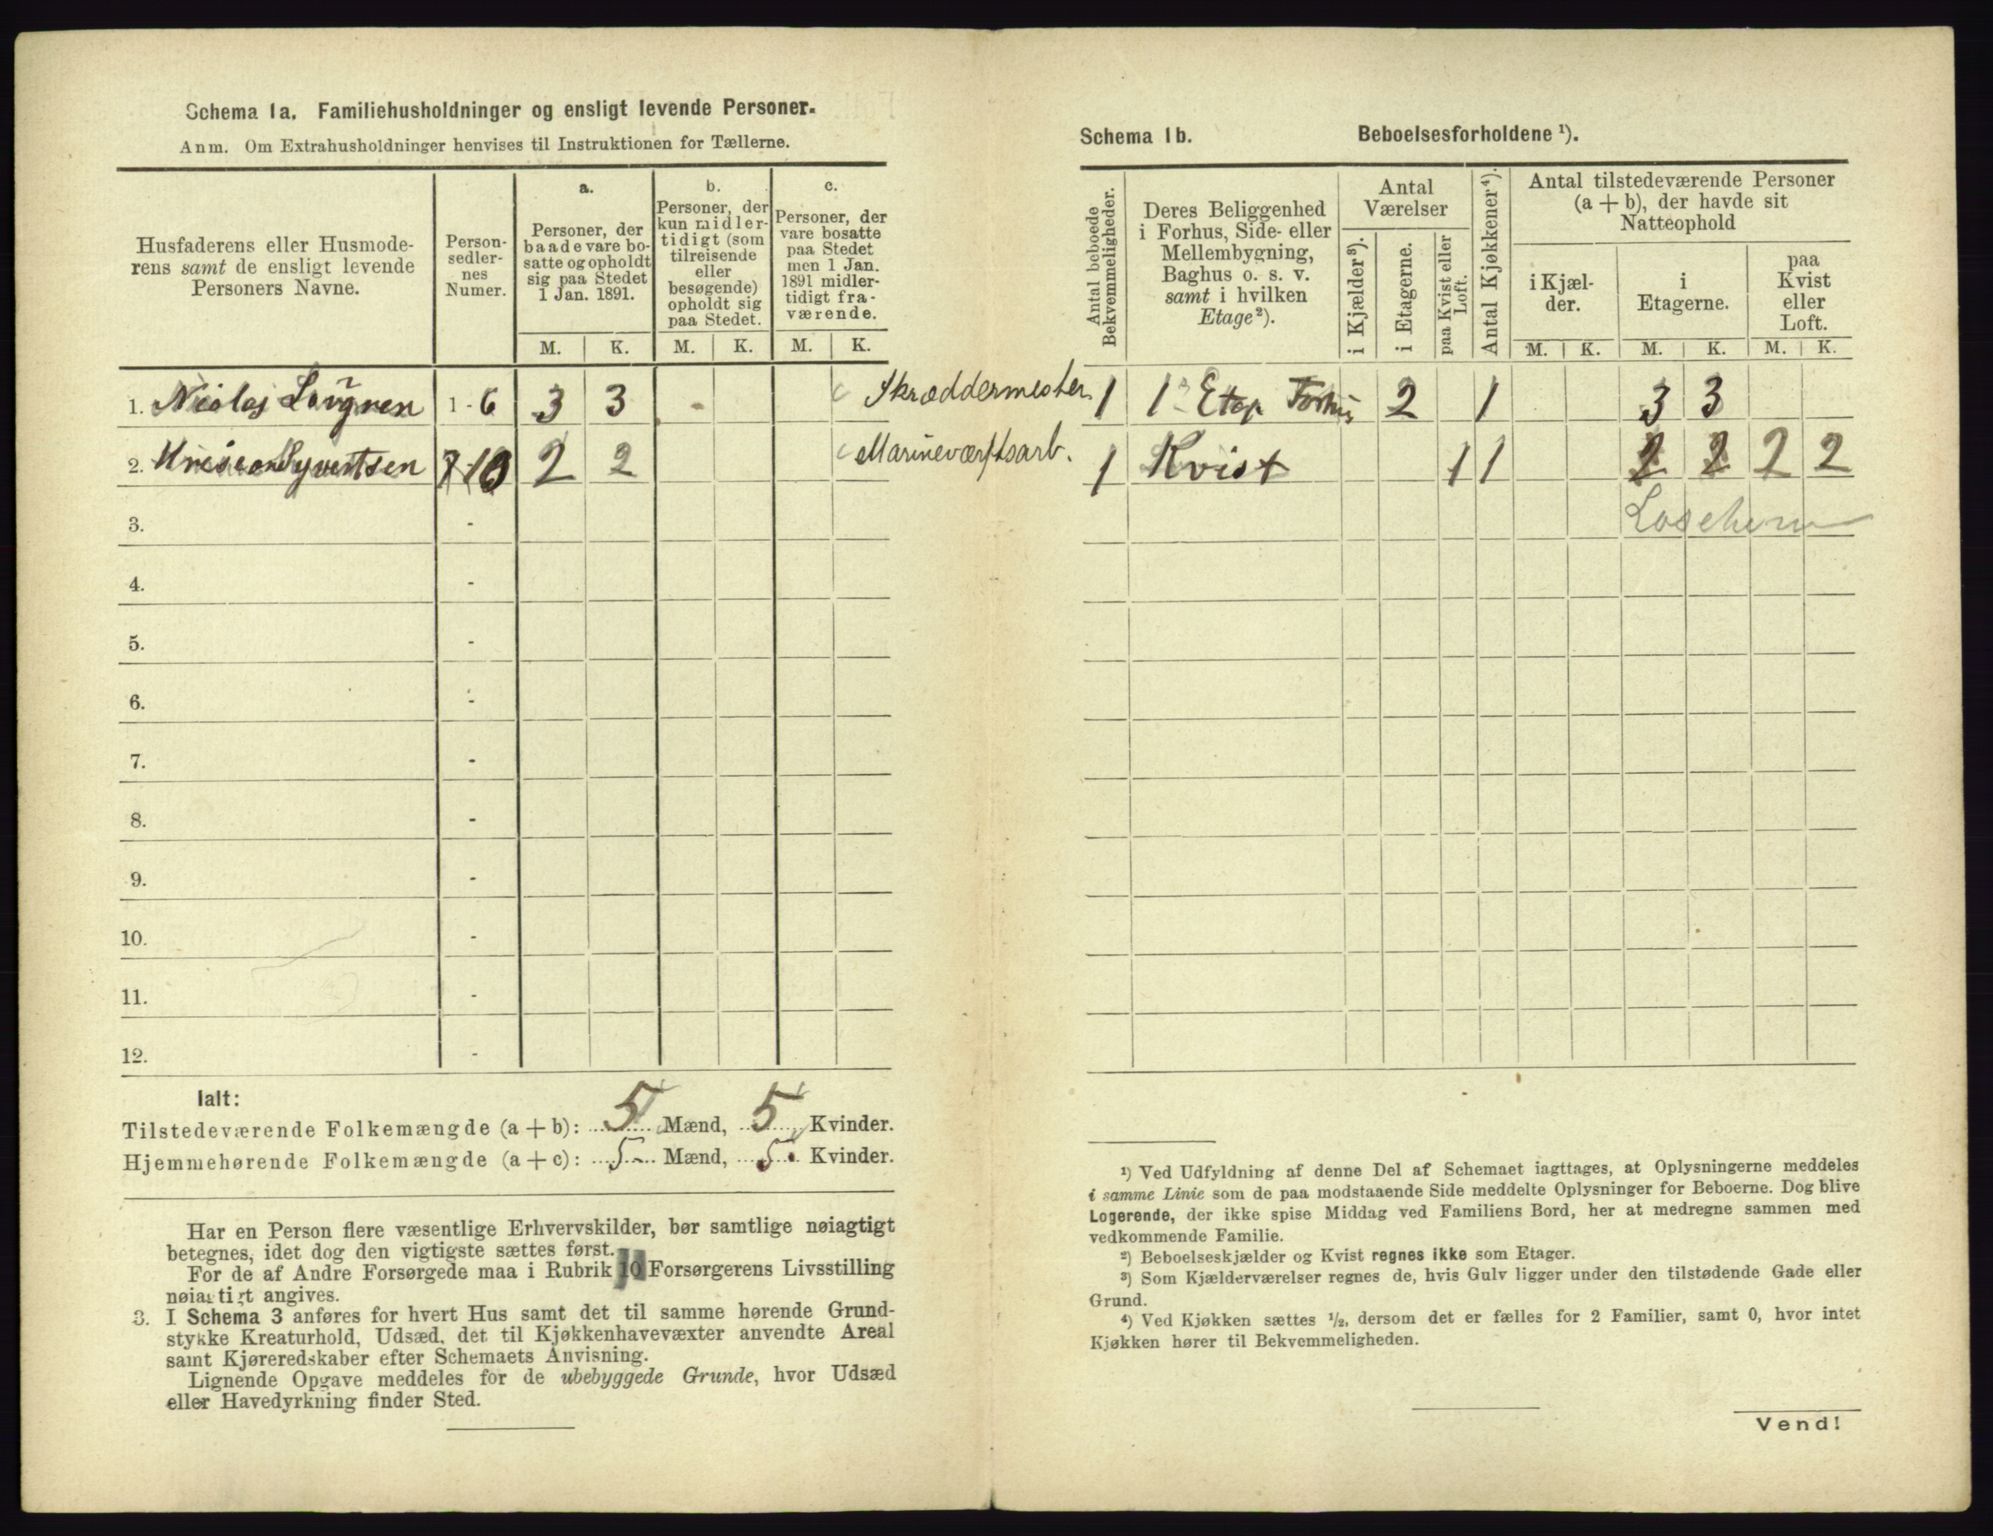 Schema 1a. Familiehusholdninger og ensligt levende Personer.
Anm. Om Extrahusholdninger henvises til Instruktionen for Tællerne.
Husfaderens eller Husmode-
rens samt de ensligt levende
Personers Navne.
Person-
sedler-
nes
Numer.
a.
Personer, der
baade vare bo-
satte og opholdt
sig paa Stedet
1 Jan. 1891.
b.
Personer, der
kun midler-
tidigt (som
tilreisende
eller
besøgende)
opholdt sig
paa Stedet.
c.
Personer, der
vare bosatte
paa Stedet
men 1 Jan.
1891 midler-
tidigt fra-
værende.
M. K. M. K. M. K.
1. Nicolaj 1 - 6 3 3 Skræddermester
2. Syvertsen 7-10 2 2 Marineværftsarb.
3. -
4. -
5. -
6. -
7. -
8. -
9. -
10. -
11. -
12. -
Ialt:
Tilstedeværende Folkemængde (a + b): 5 Mænd, 5 Kvinder.
Hjemmehørende Folkemængde (a + c): 5 Mænd, 5 Kvinder.
Har en Person flere væsentlige Erhvervskilder, bør samtlige nøiagtigt
betegnes, idet dog den vigtigste sættes først.
For de af Andre Forsørgede maa i Rubrik 10 Forsørgerens Livsstilling
nøiagtigt angives.
3. I Schema 3 anføres for hvert Hus samt det til samme hørende Grund-
stykke Kreaturhold, Udsæd, det til Kjøkkenhavevæxter anvendte Areal
samt Kjøreredskaber efter Schemaets Anvisning.
Lignende Opgave meddeles for de ubebyggede Grunde, hvor Udsæd
eller Havedyrkning finder Sted.
Schema 1b. Beboelsesforholdene ¹).
Antal beboede
Bekvemmeligheder.
Deres Beliggenhed
i Forhus, Side- eller
Mellembygning,
Baghus o. s. v.
samt i hvilken
Etage ²).
Antal
Værelser
i Kjælder ³).
i Etagerne.
paa Kvist eller
Loft.
Antal Kjøkkener ⁴).
Antal tilstedeværende Personer
(a + b), der havde sit
Natteophold
i Kjæl-
der.
i
Etagerne.
paa
Kvist
eller
Loft.
M. K. M. K. M. K.
1 1 Etag Forhus 2 1 3 3
1 Kvist 1 1 2 2 2 2
¹) Ved Udfyldning af denne Del af Schemaet iagttages, at Oplysningerne meddeles
i samme Linie som de paa modstaaende Side meddelte Oplysninger for Beboerne. Dog blive
Logerende, der ikke spise Middag ved Familiens Bord, her at medregne sammen med
vedkommende Familie.
²) Beboelseskjælder og Kvist regnes ikke som Etager.
³) Som Kjælderværelser regnes de, hvis Gulv ligger under den tilstødende Gade eller
Grund.
⁴) Ved Kjøkken sættes ½, dersom det er fælles for 2 Familier, samt 0, hvor intet
Kjøkken hører til Bekvemmeligheden.
Vend!